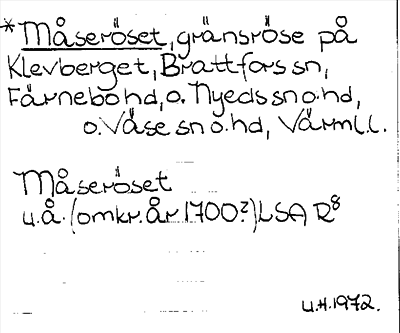 *Måseröset, gränsröse på
Klevberget, Brattfors sn,
Färnebo hd, o. Nyeds sn o. hd,
o. Väse sn o. hd, Värml.l.
Måseröset
u.å. (omkr. år 1700?) LSA R8
U.H. 1972.